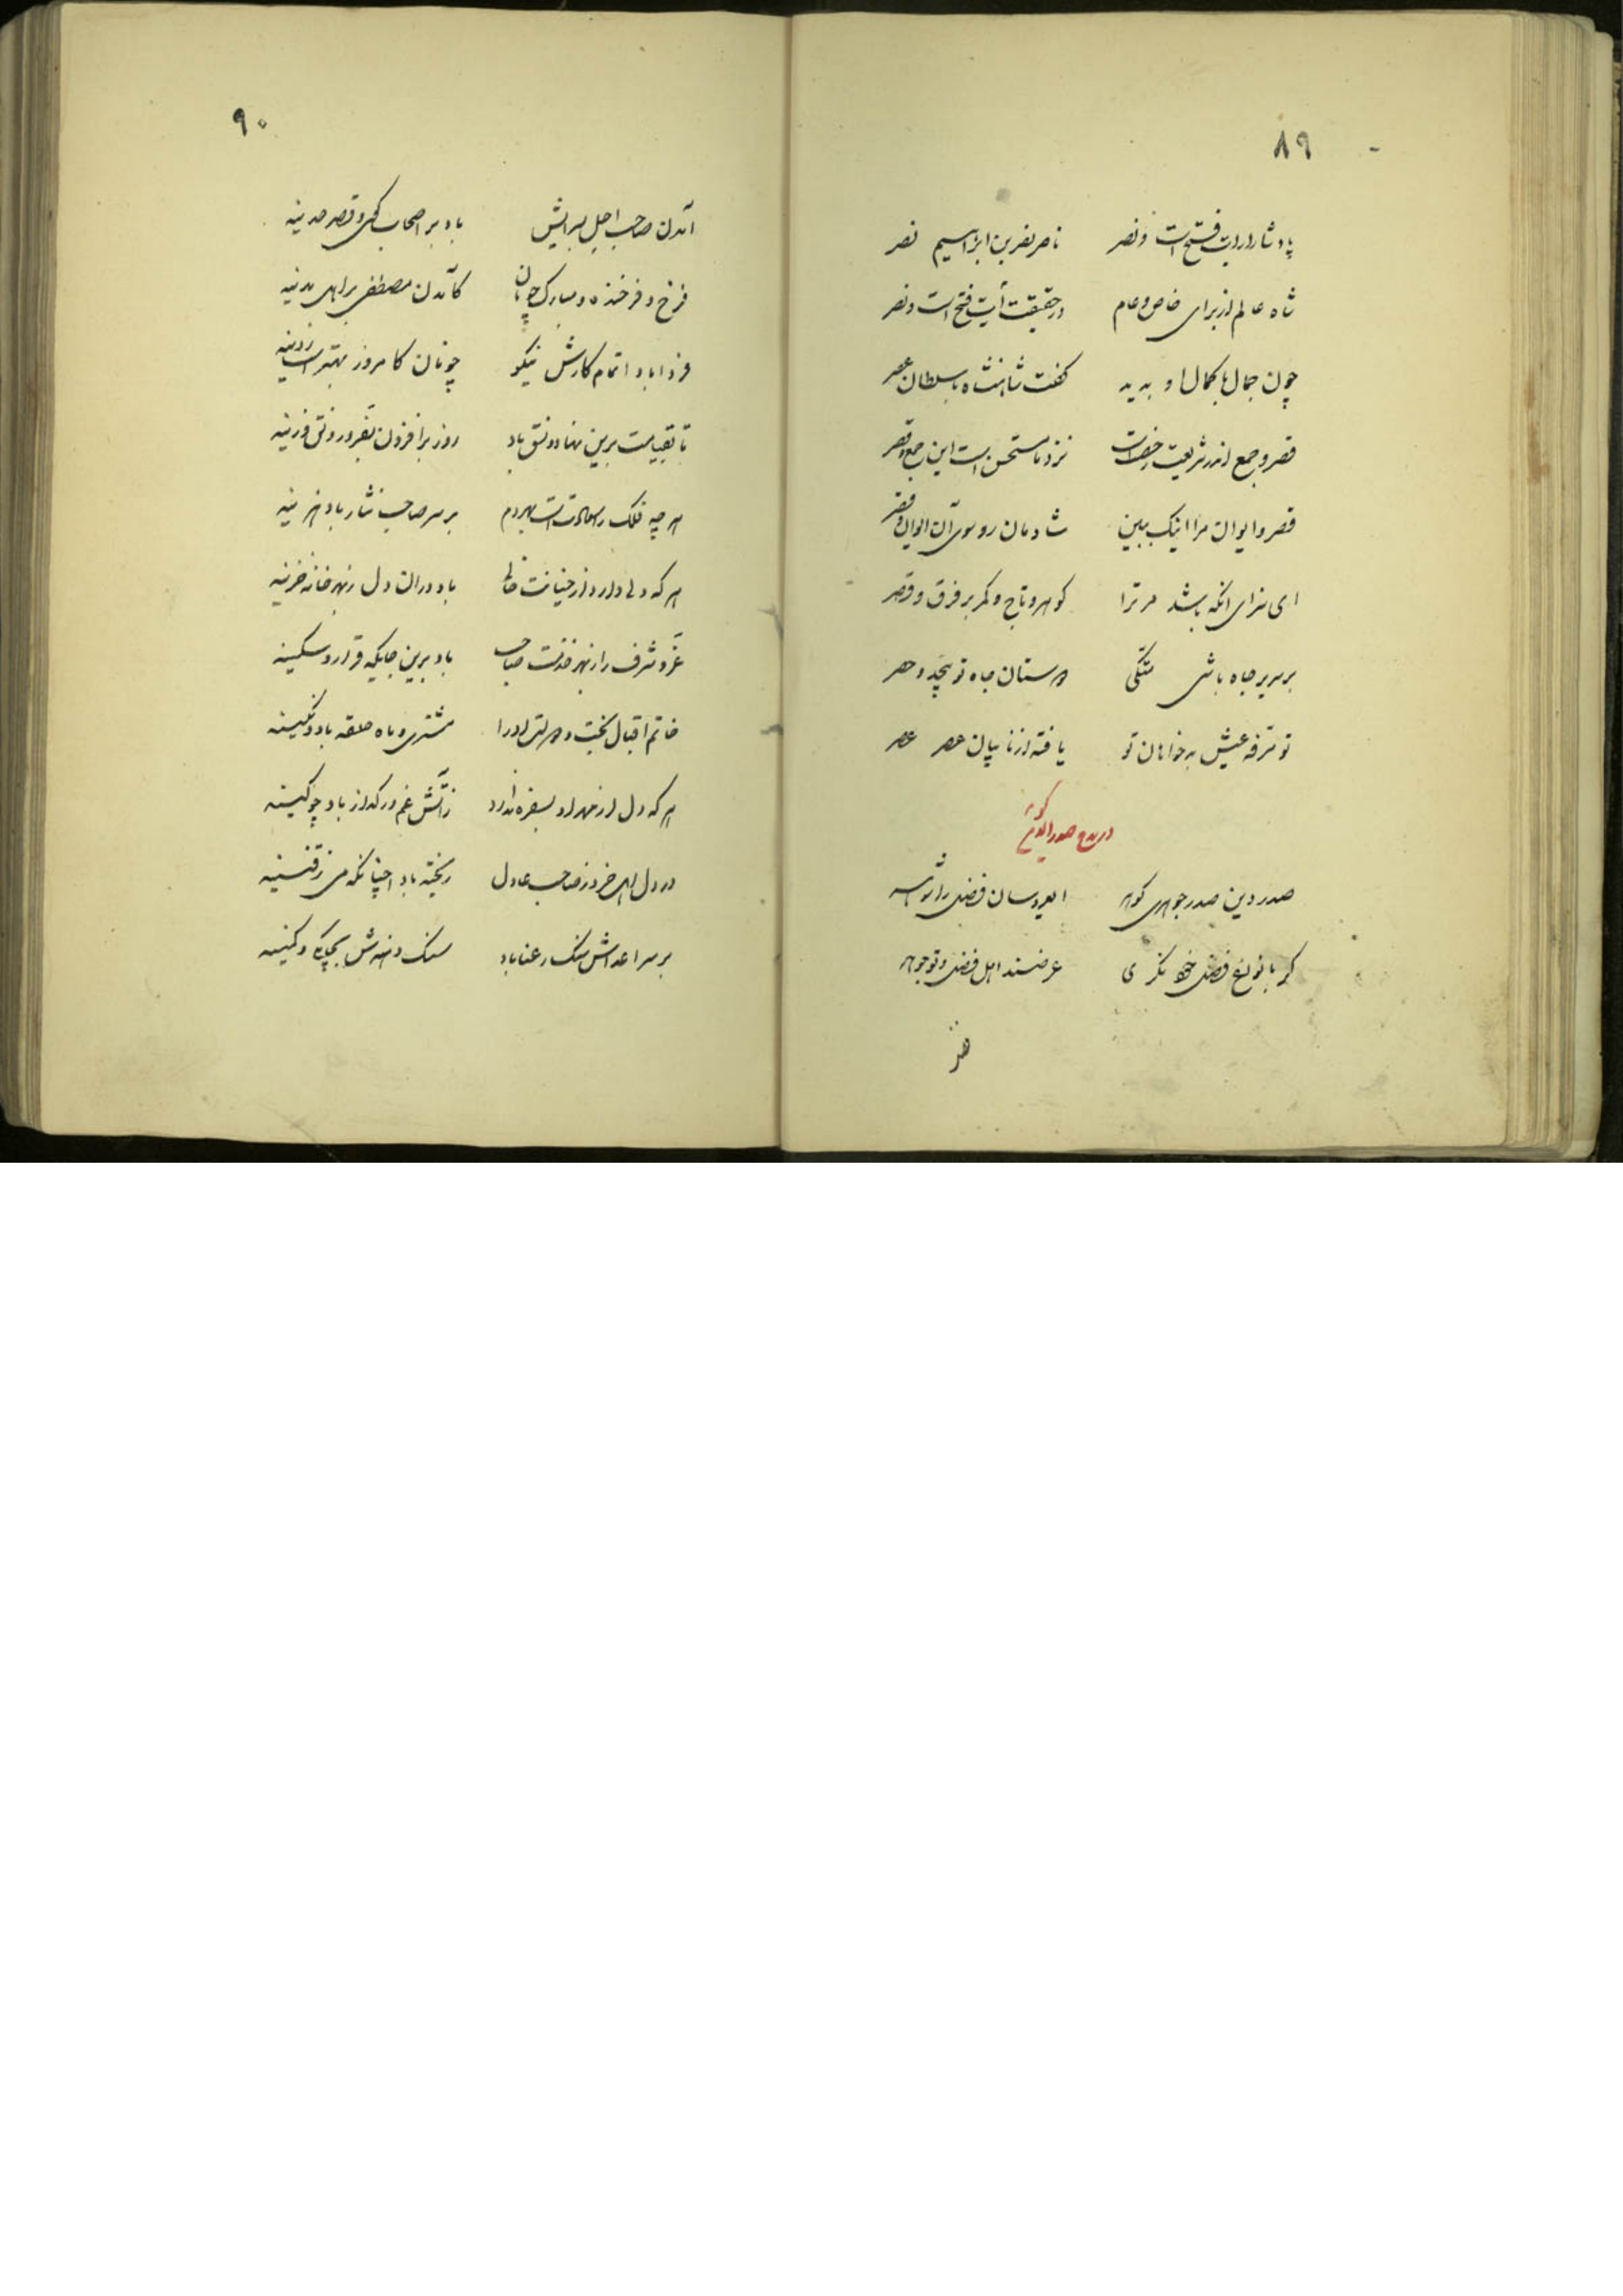 ۸۹
پادشا را رایت فتح است و نصر ناصر نصر بن ابراهیم نصر
شاه عالم از برای خاص و عام در حقیقت آیت فتح است و نصر
چون جمال با کمال او بدید کفت شاهنشاه با سلطان عصر
قصر و جمع اندر شریعت رخصت است نزد ما مستحسن است این جمع و قصر
قصر و ایوان مرا اینک ببین شادمان رو سوی آن ایوان و قصر
ای سزای انکه باشد مر ترا کوهر و تاج و کمر بر فرق و
بر سریر جاه باشی متکی و حصر
تو مرفه عیش بدخواهان تو یافته از نایبان عصر عصر
در مدح صدرالدین
صدر دین صدر جوهری کوهر فضل را
کر بانواع فضل خود نکری عرضند اهل فضل و تو جوهر
هنر
۹۰
آمدن صاحب اجل بسرایش باد بر اصحاب و قصر مدینه
فرخ و فرخنده و مبارک چونان کآمدن مصطفی بر اهل مدینه
فردا باد اتمام کارش نیکو چونان کامروز بهتر است زدینه
تا بقیامت برین نهاد و نسق باد روز بر افزون بفر و رونق و زینه
هر چه فلک را سعادت است بهر دم بر سر صاحب نثار باد هر
هر که دلی دارد از خیانت خالی باد در ان دل ز مهر خانه خزینه
عز و شرف را ز بهر خدمت صاحب باد برین جایکه قرار و سکینه
خاتم اقبال بخت و دولت او را مشتری و ماه حلقه باد و نکینه
هر که دل از مهر او ندارد زآتش غم در کداز باد چو
در دل اهل خرد ز صاحب عادل ریخته باد انچنانکه می ز قنینه
بر سر اعداش سنک رعنا باد سنک